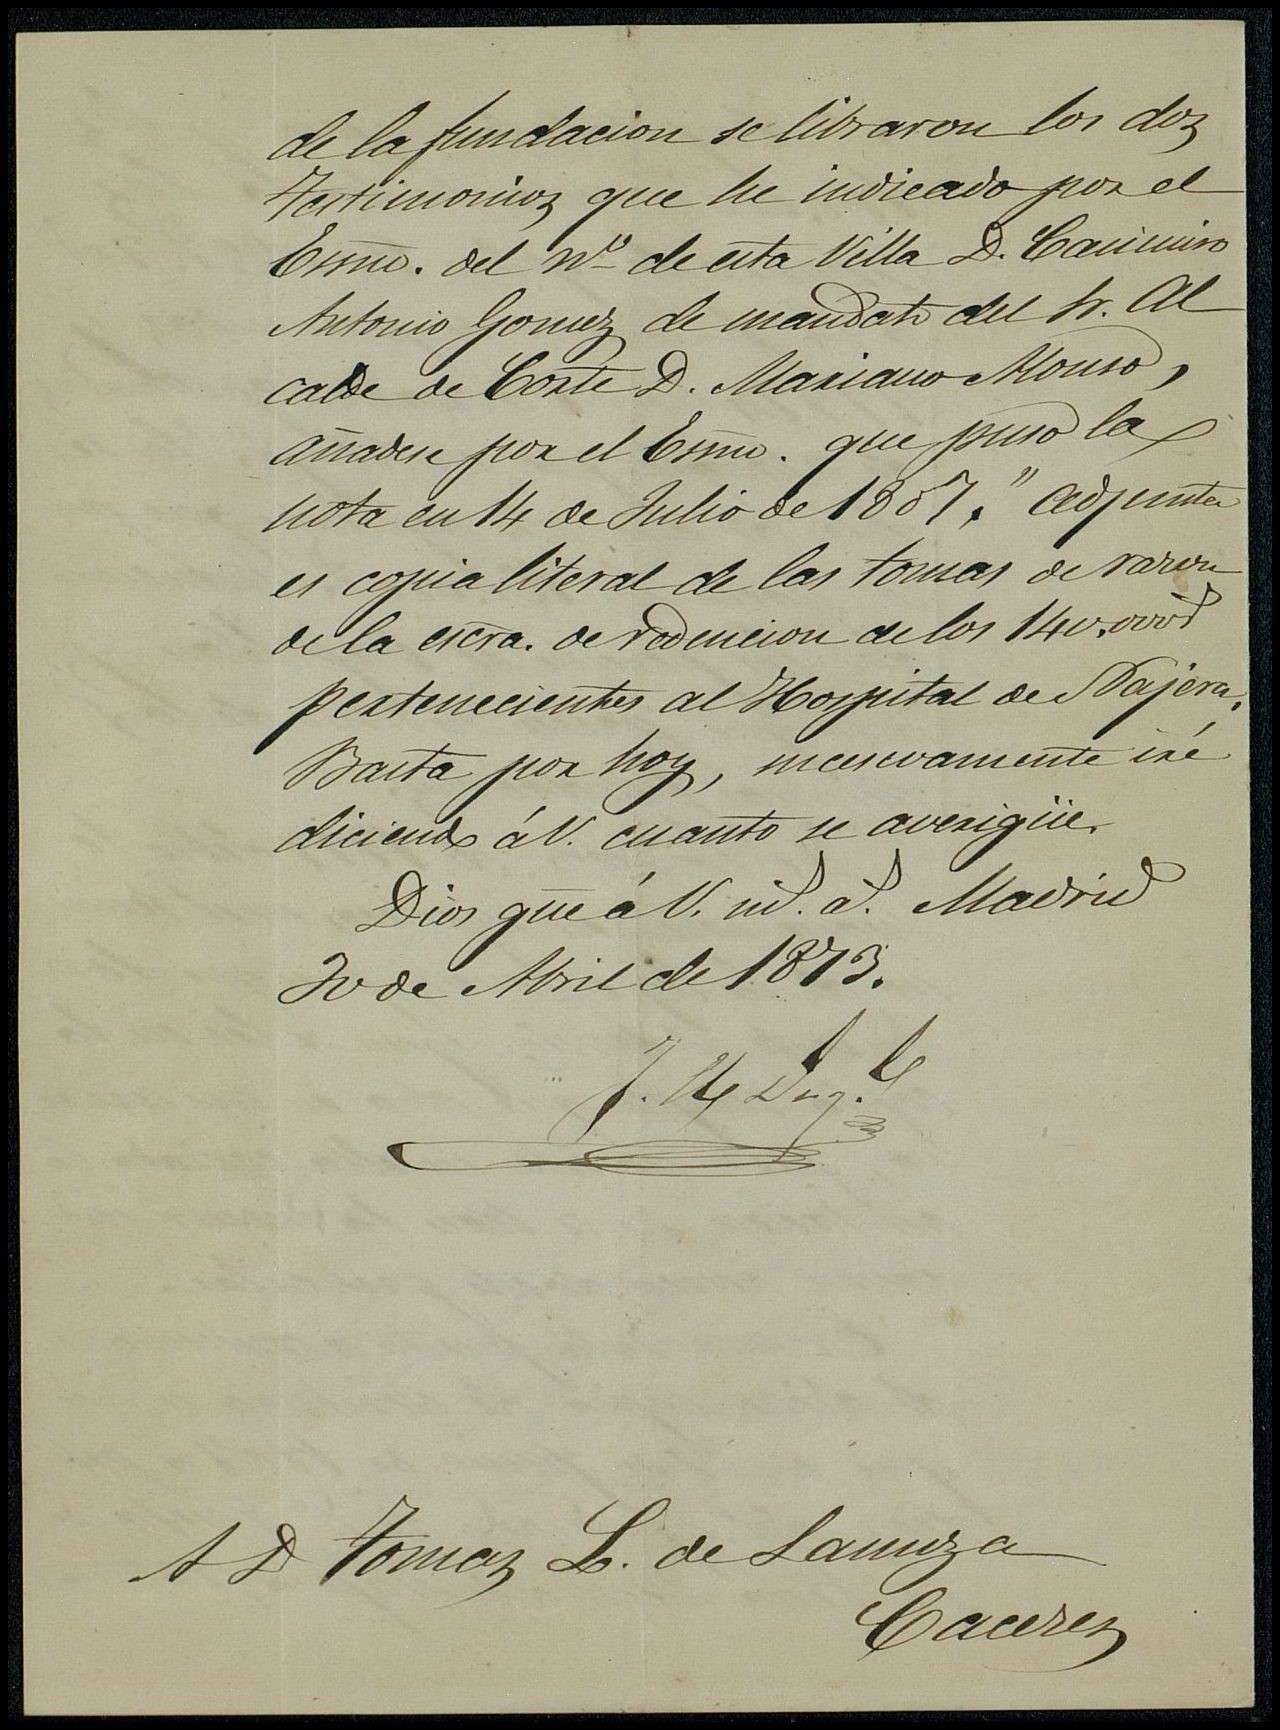 de la fundacion se libraron los dos
Testimonios que he indicado por el
Essno. del nº de esta Villa D. Casimiro
Antonio Gomez de mandato del Sr. Al
calde de Corte D. Mariano Alonso,
añadese por el Essno. que puso la
nota en 14 de Julio de 1807." Adjunta
es copia literal de las tomas de razon
de la escra. de redencion de los 140.000
pertenecientes al Hospital de Najera.
Basta por hoy, sucesivamente iré
diciendo á V. cuanto se averigüe.
Dios gue á V. ms. as. Madrid
30 de Abril de 1873.
A D Tomas L. de Lanuza
Caceres